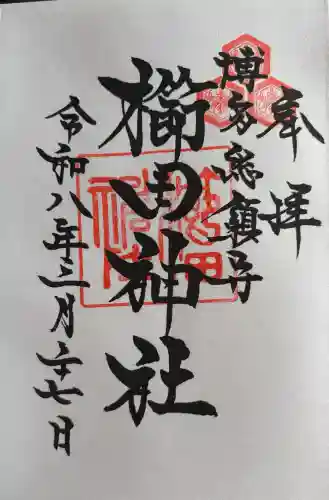 奉拝
博多総鎮守
櫛田神社
令和八年三月二十七日